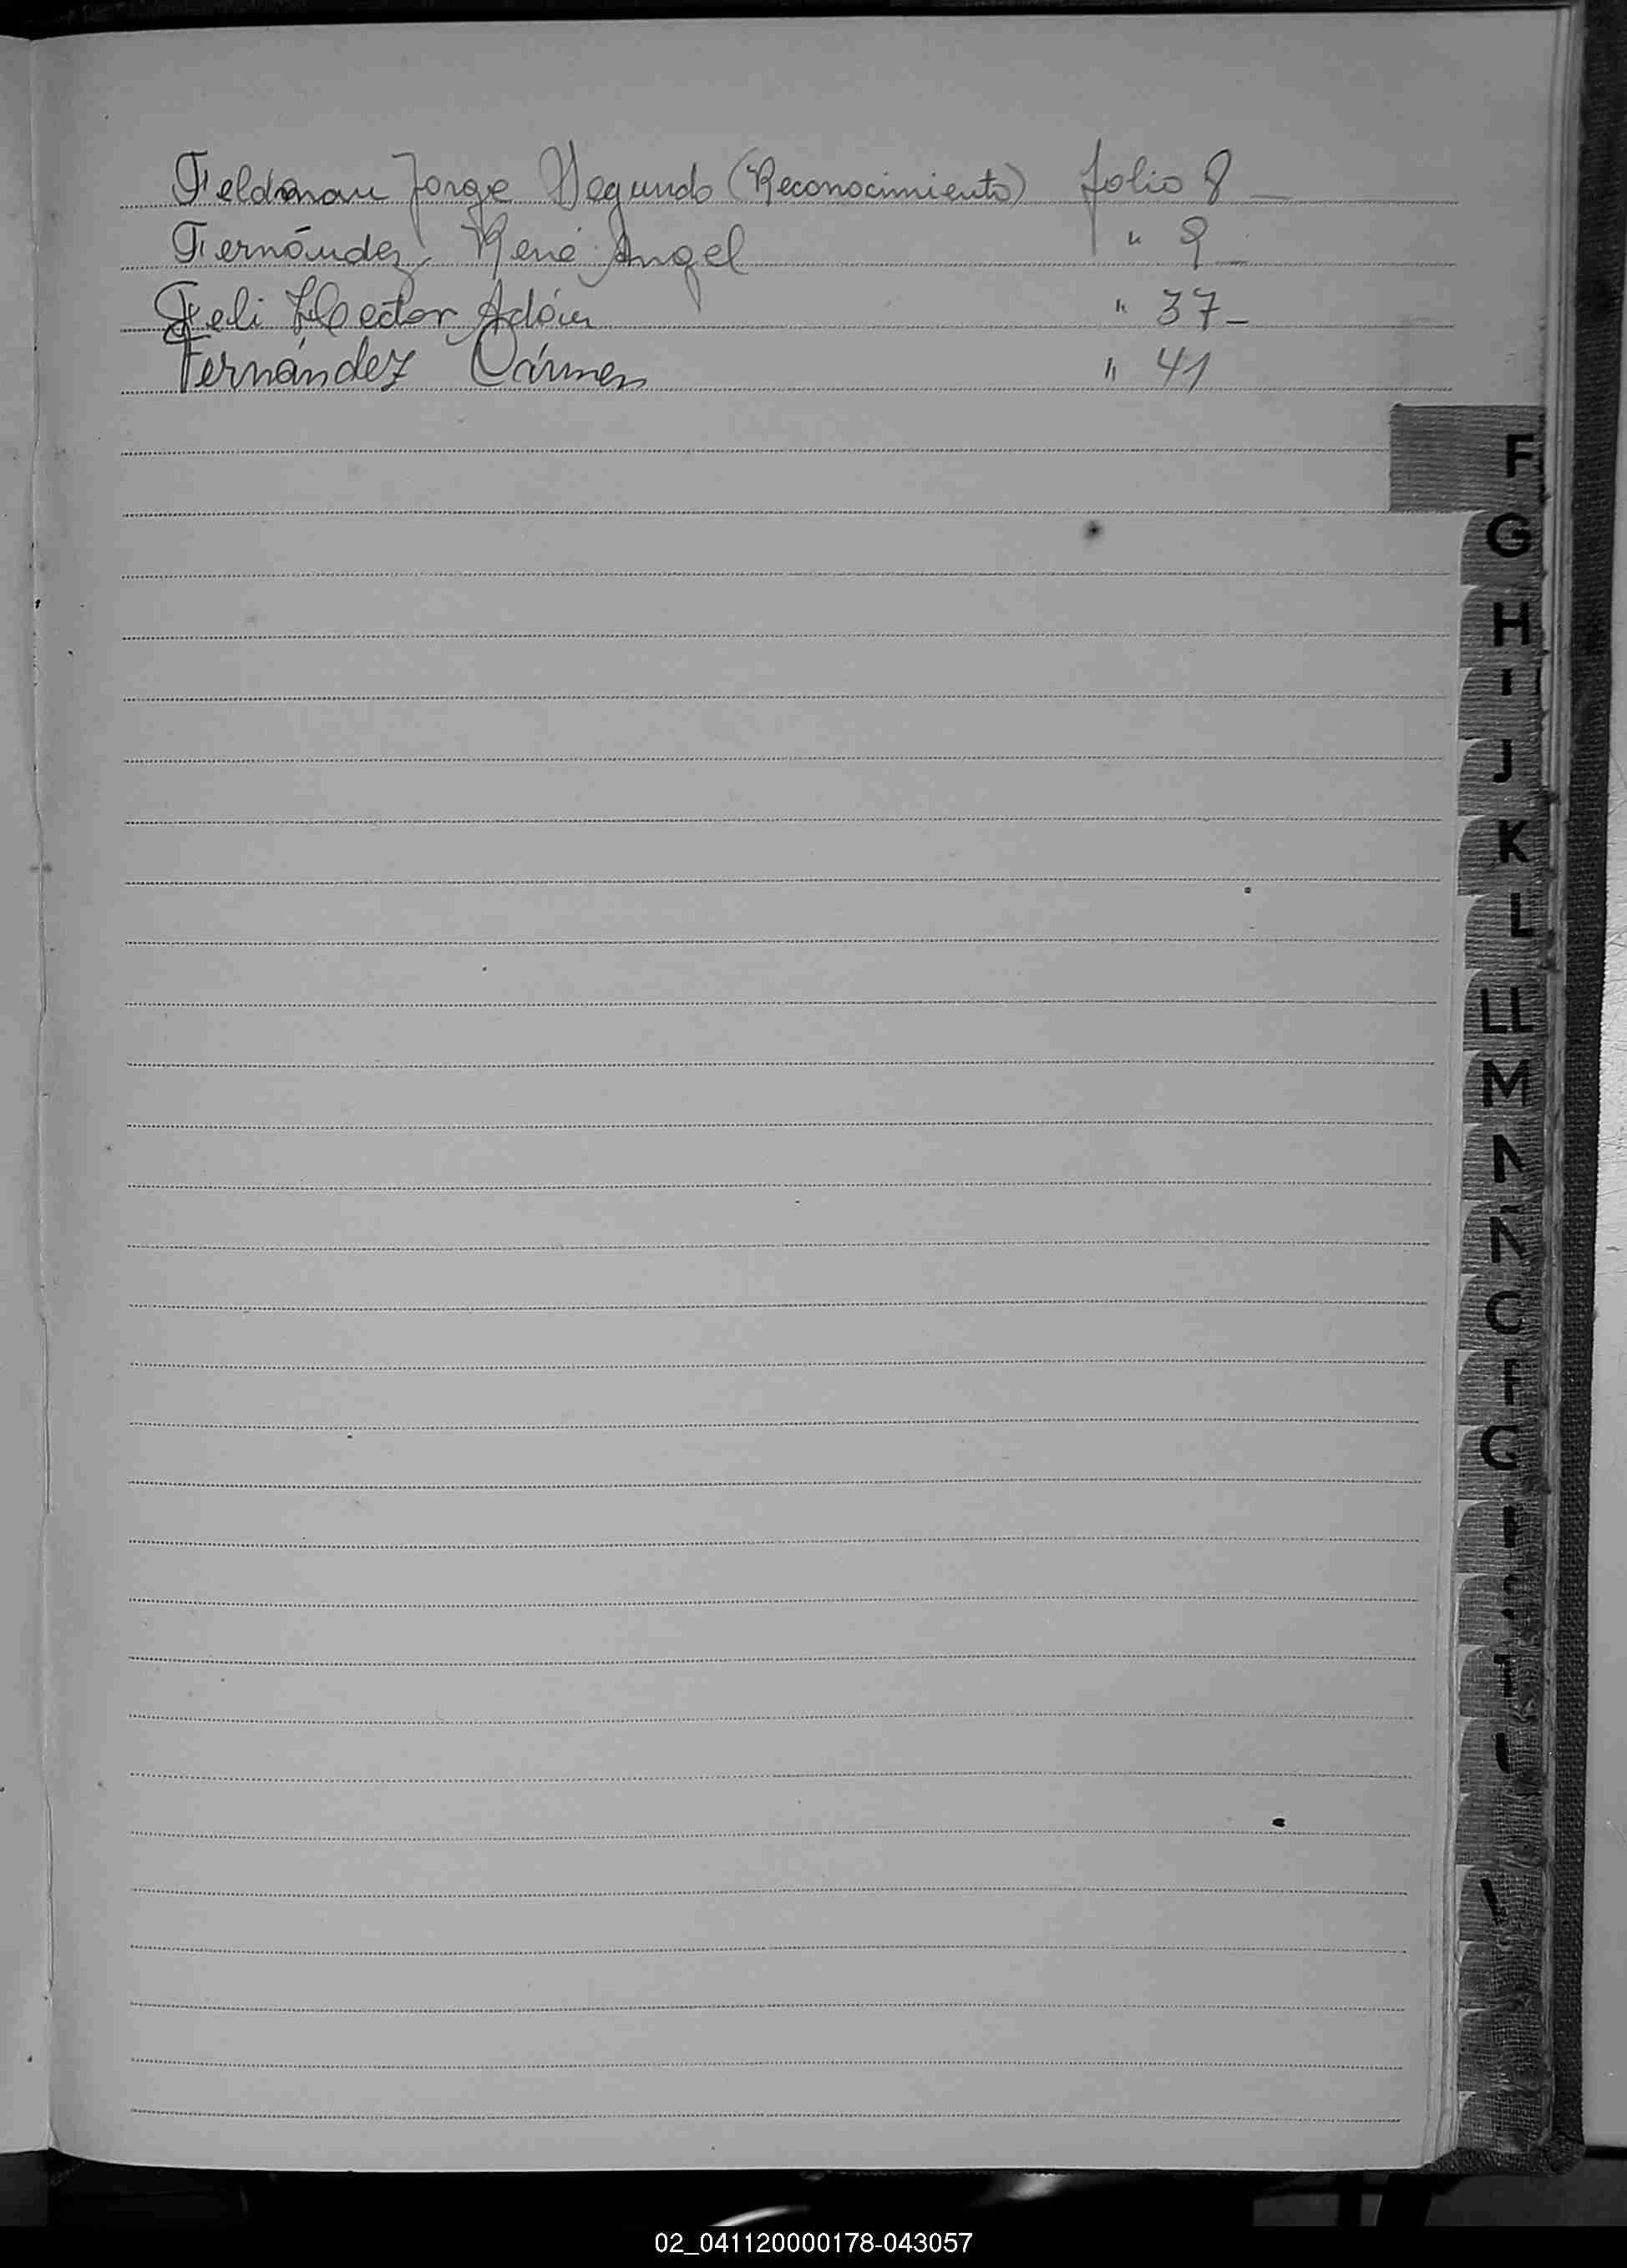 Feldman Jorge Segundo (Reconocimiento) folio 8 _
Fernández René Angel " 9 _
Feli Hector Adán " 37 _
Fernández Cármen " 41
F
G
H
I
J
K
L
LL
M
N
Ñ
02_041120000178-043057